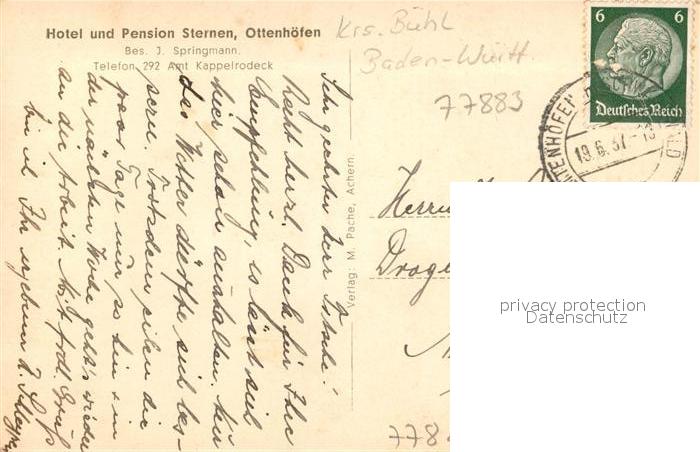 Hotel und Pension Sternen, Ottenhöfen
Bes. J. Springmann.
Telefon 292 Amt Kappelrodeck
Krs. Bühl
Baden-Württ.
77883
6 6
Deutsches Reich
OTTENHÖFEN
19.6.37.-18
Sehr geehrter Herr
Recht herzl. Dank für Ihre
Empfehlung, es lässt sich
hier schon aushalten. Nur
das Wetter dürfte sich bes-
sern. Trotzdem eilen die
paar Tage nur so hin & in
der nächsten Woche geht's wieder
an die Arbeit. Mit frdl. Gruß
bin ich Ihr ergebener
Verlag: M. Pache, Achern.
Herrn
Droge
778
privacy protection
Datenschutz